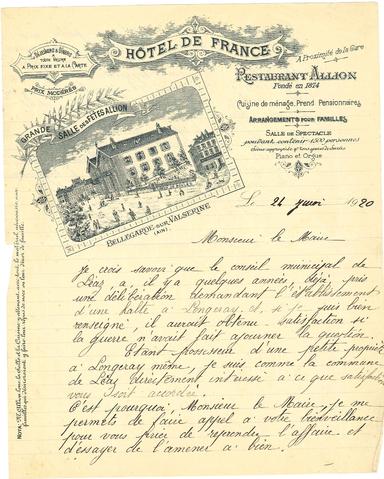 HÔTEL DE FRANCE
À TOUTE HEURE
À PRIX FIXE ET À LA CARTE
PRIX MODÉRÉS
A Proximité de la Gare
RESTAURANT ALLION
Fondé en 1874
Cuisine de ménage, Prend Pensionnaires
ARRANGEMENTS POUR FAMILLES
SALLE DE SPECTACLE
pouvant contenir 1500 personnes
Piano et Orgue
GRANDE SALLE DES FÊTES ALLION
BELLEGARDE-SUR-VALSERINE
(AIN)
Le 26 juin 1920
Monsieur le Maire
Je crois savoir que le conseil municipal de
Léaz a, il y a quelques années, déjà pris
une délibération demandant l'établissement
d'une halte à Longeray et, si je suis bien
renseigné, il aurait obtenu satisfaction si
la guerre n'avait fait ajourner la question.
Etant possesseur d'une petite propriété
à Longeray même, je suis comme la commune
de Léaz directement intéressé à ce que satisfaction
vous soit accordée.
C'est pourquoi, Monsieur le Maire, je me
permets de faire appel à votre bienveillance
pour vous prier de reprendre l'affaire et
d'essayer de l'amener à bien.